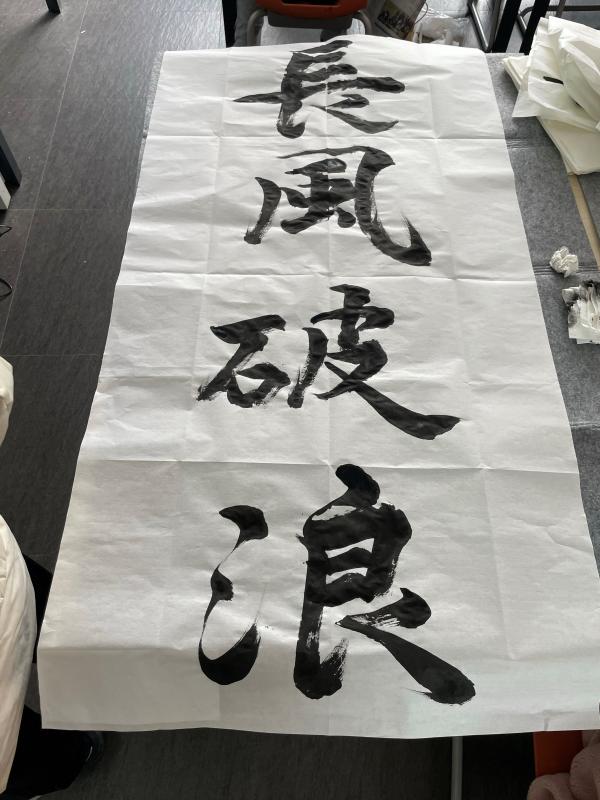 長風破浪